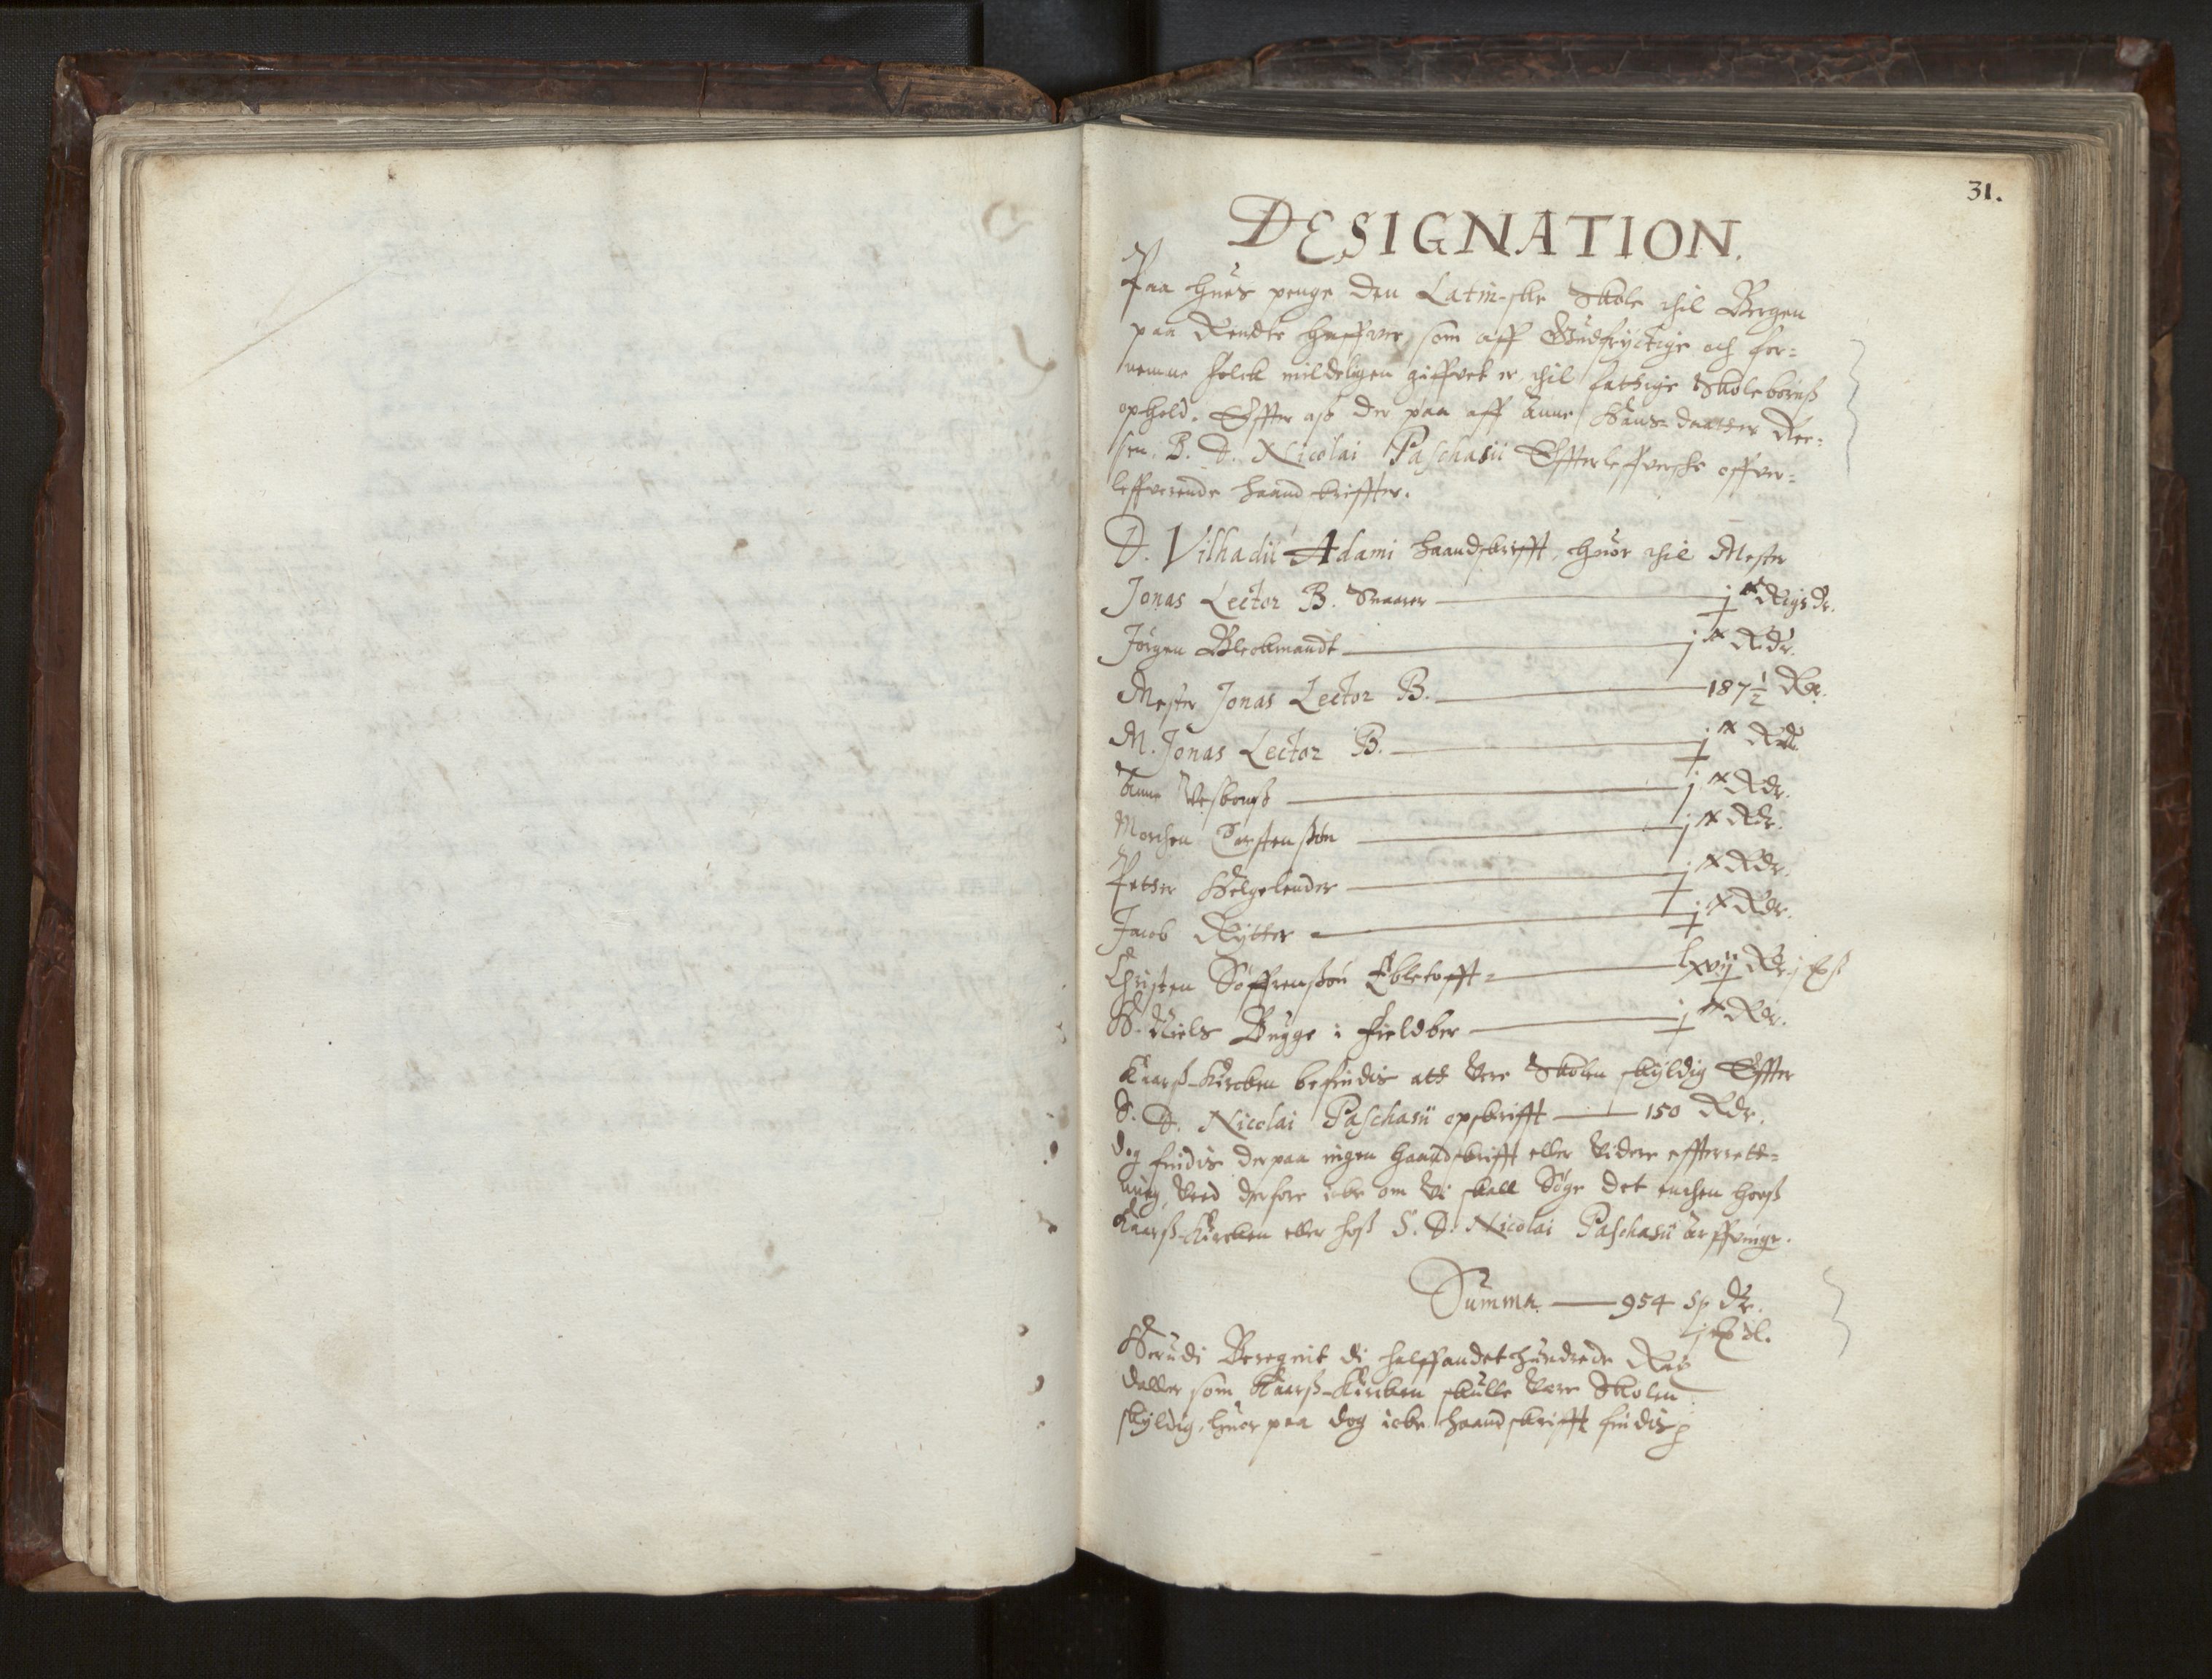 31.
DESIGNATION.
Paa hues penge den Latin-ske Skole thil Bergen
paa Rendte haffver, som aff Gudfryctige och for=
nemme folck mildeligen giffvet er thil fattige Skolebørnß
ophold. Effter aß der paa aff Anne Hans=daatter
S. D. Nicolai Paschasii Effterleffverske offver=
leffverende haand kriffter.
D. Vilhadii Adami haandskrifft, huor thil Mester
Jonas Lector B. Svarer — j Rigs dr.
Jørgen Bleckmandt — j Rdr.
Mester Jonas Lector B. — 187½ Rdr.
M. Jonas Lector B. — j Rdr.
Anne — j Rdr.
Morthen Carstensßøn — j Rdr.
Petter Helgelender — j Rdr.
Jacob Rytter — j Rdr.
Christen Søffrensßøn Ebletofft — lxvij Rdr. j
H. Niels Bugge i Fieldber — j Rdr.
Kaarß-Kircken befindis att Vere Skolen skyldig Effter
S. D. Nicolai Paschasii opskrifft — 150 Rdr.
dog findis der paa ingen haandskrifft eller Videre effterrett=
ning, Veed derfore icke om Vi skall Søge det enthen hooß
Kaarß-Kircken eller hoß S. D. Nicolai Paschasii Arffvinge.
Summa — 954 Sp dr.
j
Herudi Beregnit di halffandet hundrede Rix
daller som Kaarß-Kircken skulle Vere Skolen
skyldig, huor paa dog icke haandskrifft findis